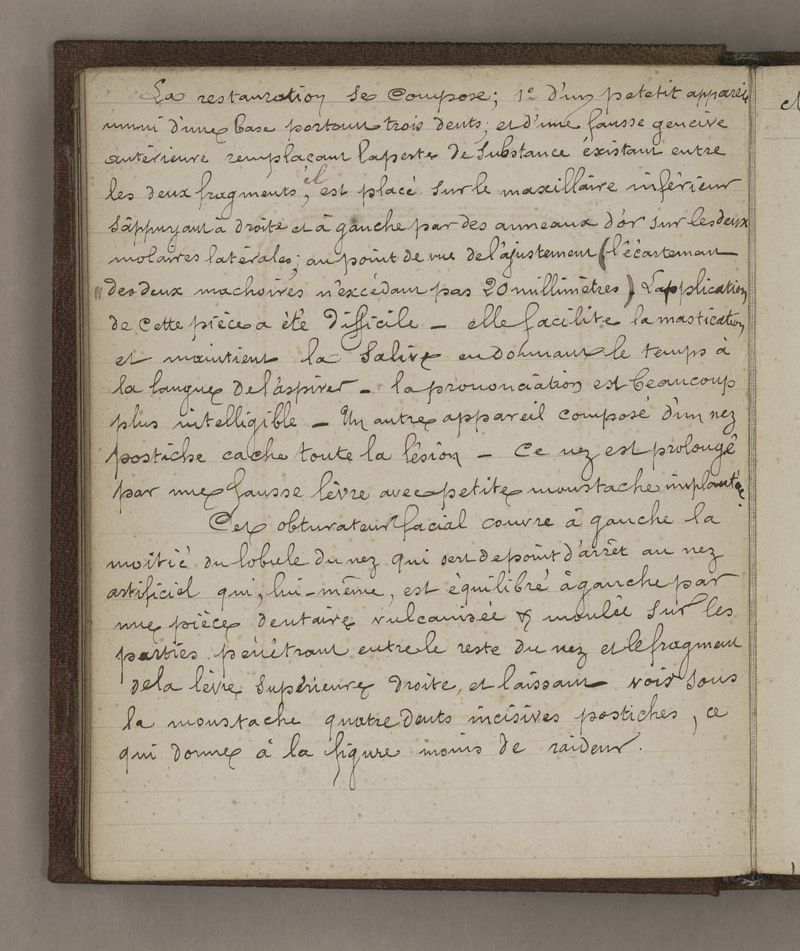 La restauration se compose; 1º d'un petetit appareil
muni d'une base portant trois dents; et d'une fausse gencive
antérieure remplaçant la perte de Substance éxistant entre
les deux fragments, il est placé sur le maxillaire inférieur
s'appuyant à droite et à gauche par des anneaux d'or sur les deux
molaires latérales; au point de vue de l'ajustement (l'écartement
des deux machoires n'excédant pas 20 millimètres) L'application
de cette pièce a été difficile — elle facilite la mastication
et maintient la Salive en donnant le temps à
la langue de l'aspirer — la prononciation est beaucoup
plus intelligible — Un autre appareil composé d'un nez
postiche cache toute la lésion — Ce nez est prolongé
par une fausse lèvre avec petite moustache implantée.
Cet obturateur facial couvre à gauche la
moitié du lobule du nez qui sert de point d'arrêt au nez
artificiel qui, lui-même, est équilibré à gauche par
une pièce dentaire vulcanisée & moulée sur les
parties pénétrant entre le reste du nez et le fragment
de la lèvre Supérieure droite, et laissant voir sous
la moustache quatre dents incisives postiches, ce
qui donne à la figure moins de raideur.